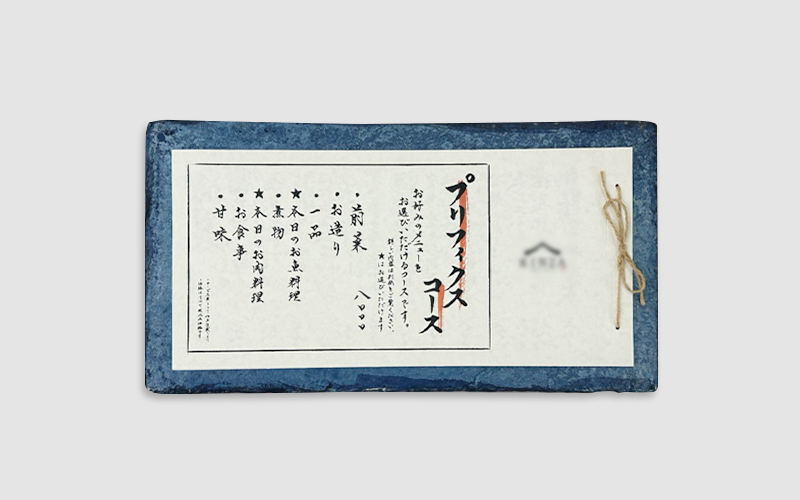 プリフィクス
コース
お好みのメニューを
お選びいただけるコースです。
★はお選びいただけます
八〇〇〇
・前菜
・お造り
・一品
★本日のお魚料理
・煮物
★本日のお肉料理
・お食事
・甘味